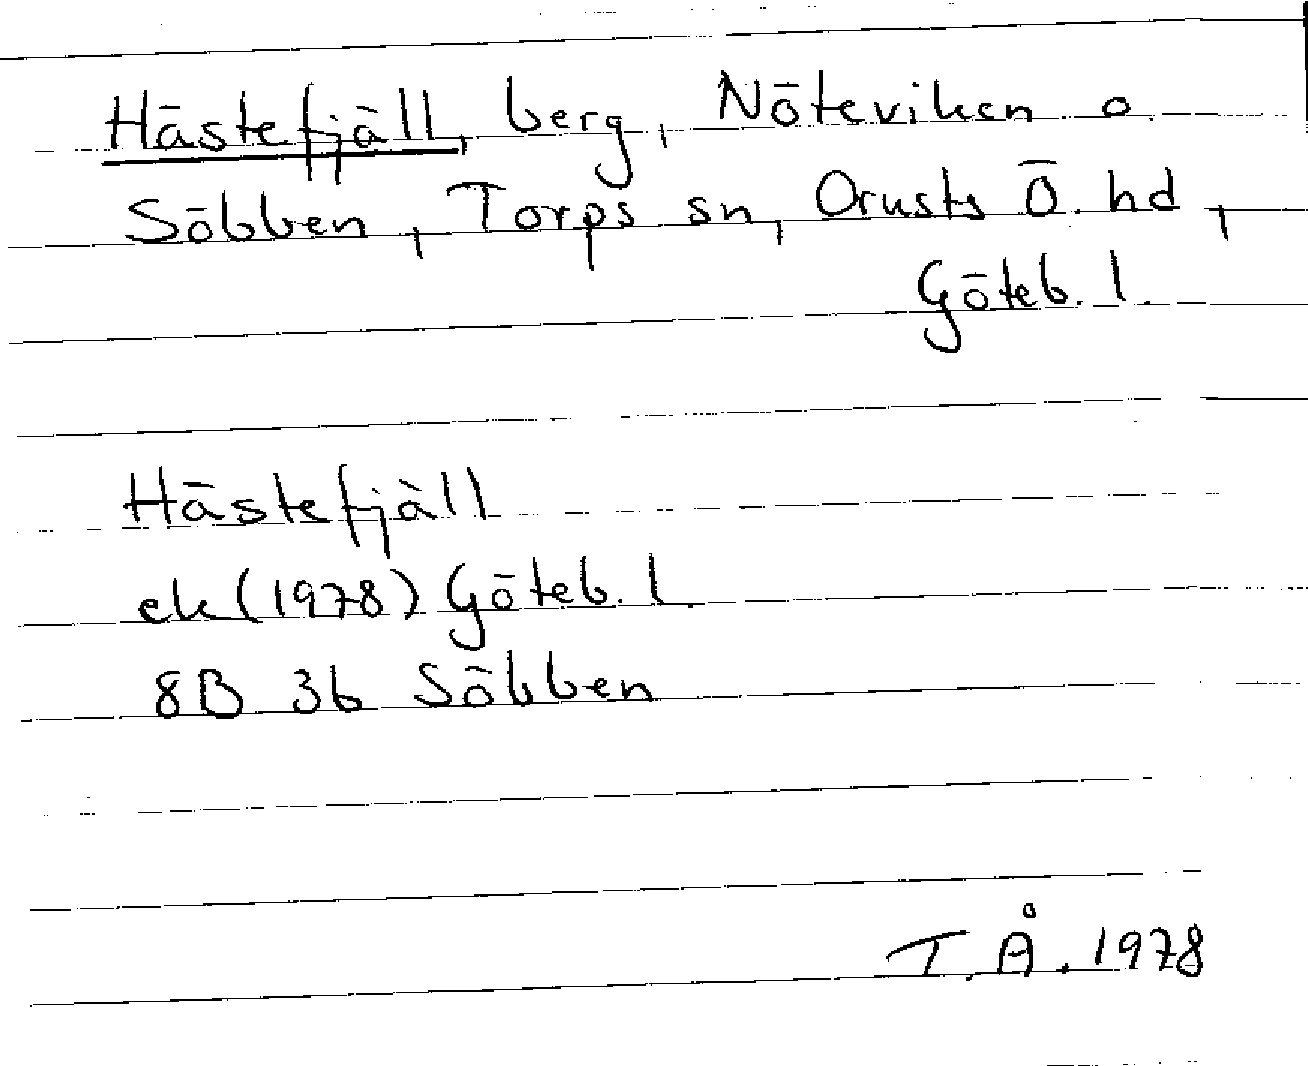 Hästefjäll, berg, Nöteviken o.
Söbben, Torps sn, Orusts Ö. hd,
Göteb. l.
Hästefjäll
ek (1978) Göteb. l.
8B 3b Söbben
T.Å. 1978